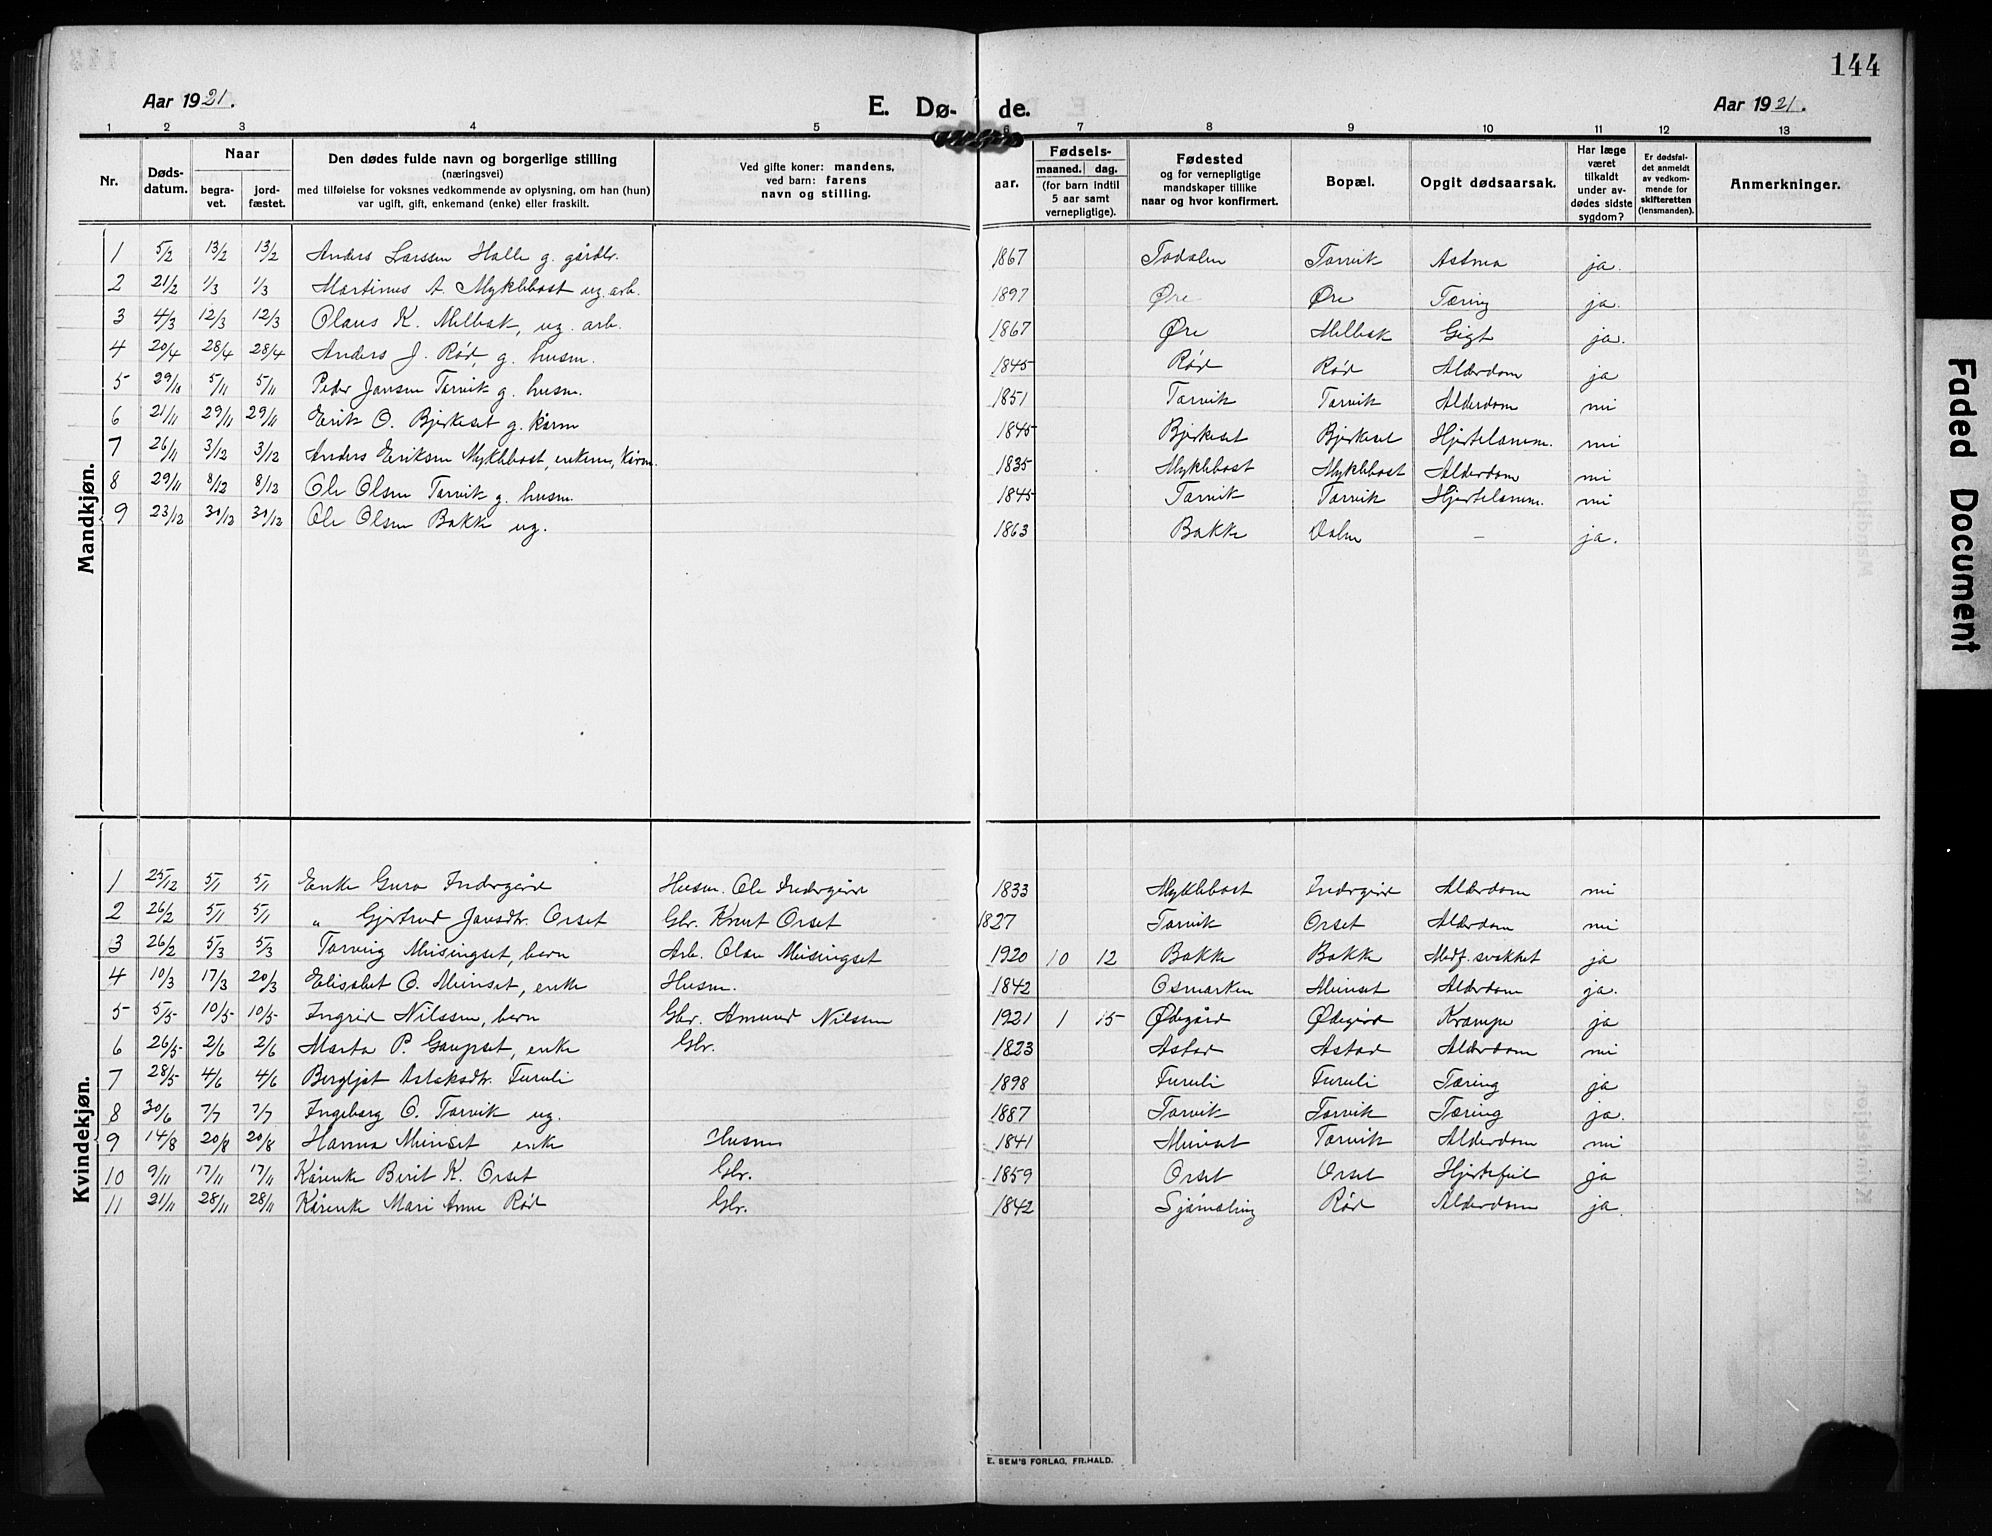 144
Aar 1921.
E. Dø- de.
Aar 1921.
1 2 3 4 5 6 7 8 9 10 11 12 13
Nr.
Døds-datum.
Naar
begra-vet.
jord-fæstet.
Den dødes fulde navn og borgerlige stilling
(næringsvei)
med tilføielse for voksnes vedkommende av oplysning, om han (hun)
var ugift, gift, enkemand (enke) eller fraskilt.
Ved gifte koner: mandens,
ved barn: farens
navn og stilling.
aar.
Fødsels-
maaned. dag.
(for barn indtil
5 aar samt
vernepligtige).
Fødested
og for vernepligtige
mandskaper tillike
naar og hvor konfirmert.
Bopæl.
Opgit dødsaarsak.
Har læge
været
tilkaldt
under av-
dødes sidste
sygdom?
Er dødsfal-
det anmeldt
av vedkom-
mende for
skifteretten
(lensmanden).
Anmerkninger.
Mandkjøn.
1 5/2 13/2 13/2 Anders Larssen Halle g. gårdbr. 1867 Todalen Torvik Astma ja.
2 21/2 1/3 1/3 Martinus A. Myklebost ug. arb. 1897 Øre Øre Tæring ja.
3 4/3 12/3 12/3 Olaus K. Melbak, ug. arb. 1867 Øre Melbak Gigt ja.
4 20/4 28/4 28/4 Anders J. Rød, g. husm. 1845 Rød Rød Alderdom ja
5 29/10 5/11 5/11 Peder Jansen Torvik g. husm. 1851 Torvik Torvik Alderdom nei
6 21/11 29/11 29/11 Erik O. Bjerkeset g. kårm 1845 Bjerkeset Bjerkeset Hjertelamm. nei
7 26/11 3/12 3/12 Anders Eriksen Myklebost, enkem, kårm. 1835 Myklebost Myklebost Alderdom nei
8 29/11 8/12 8/12 Ole Olsen Torvik g. husm. 1845 Torvik Torvik Hjertelamm. nei
9 23/12 30/12 30/12 Ole Olsen Bakke ug. 1863 Bakke - ja.
Kvindekjøn.
1 25/12 5/1 5/1 Enke Guro Indergård Husm. Ole Indergård 1833 Myklebost Indergård Alderdom nei
2 26/2 5/1 5/1 " Gjertrud Jansdtr. Orset Gbr. Knut Orset 1827 Torvik Orset Alderdom nei
3 26/2 5/3 5/3 Torveig Meisingset, barn Arb. Olav Meisingset 1920 10 12 Bakke Bakke Medf. svakhet ja
4 10/3 17/3 20/3 Elisabet O. Meinset, enke Husm. 1842 Osmarken Meinset Alderdom ja.
5 5/5 10/5 10/5 Ingrid Nilssen, barn Gbr. Amund Nilssen 1921 1 15 Ødegård Ødegård Krampe ja
6 26/5 2/6 2/6 Marta P. Gaupset, enke Gbr. 1823 Astad Astad Alderdom nei
7 28/5 4/6 4/6 Bergljot Aslaksdtr. Furuli 1898 Furuli Furuli Tæring ja
8 30/6 7/7 7/7 Ingeborg O. Torvik ug. 1887 Torvik Torvik Tæring ja.
9 14/8 20/8 20/8 Hanna Meinset enke Husm 1841 Meinset Torvik Alderdom nei
10 9/11 17/11 17/11 Kårenke Berit K. Orset Gbr. 1859 Orset Orset Hjertefeil ja
11 21/11 28/11 28/11 Kårenke Mari Anne Rød Gbr. 1842 Rød Alderdom ja.
E. SEM'S FORLAG, FR.HALD.
Faded Document